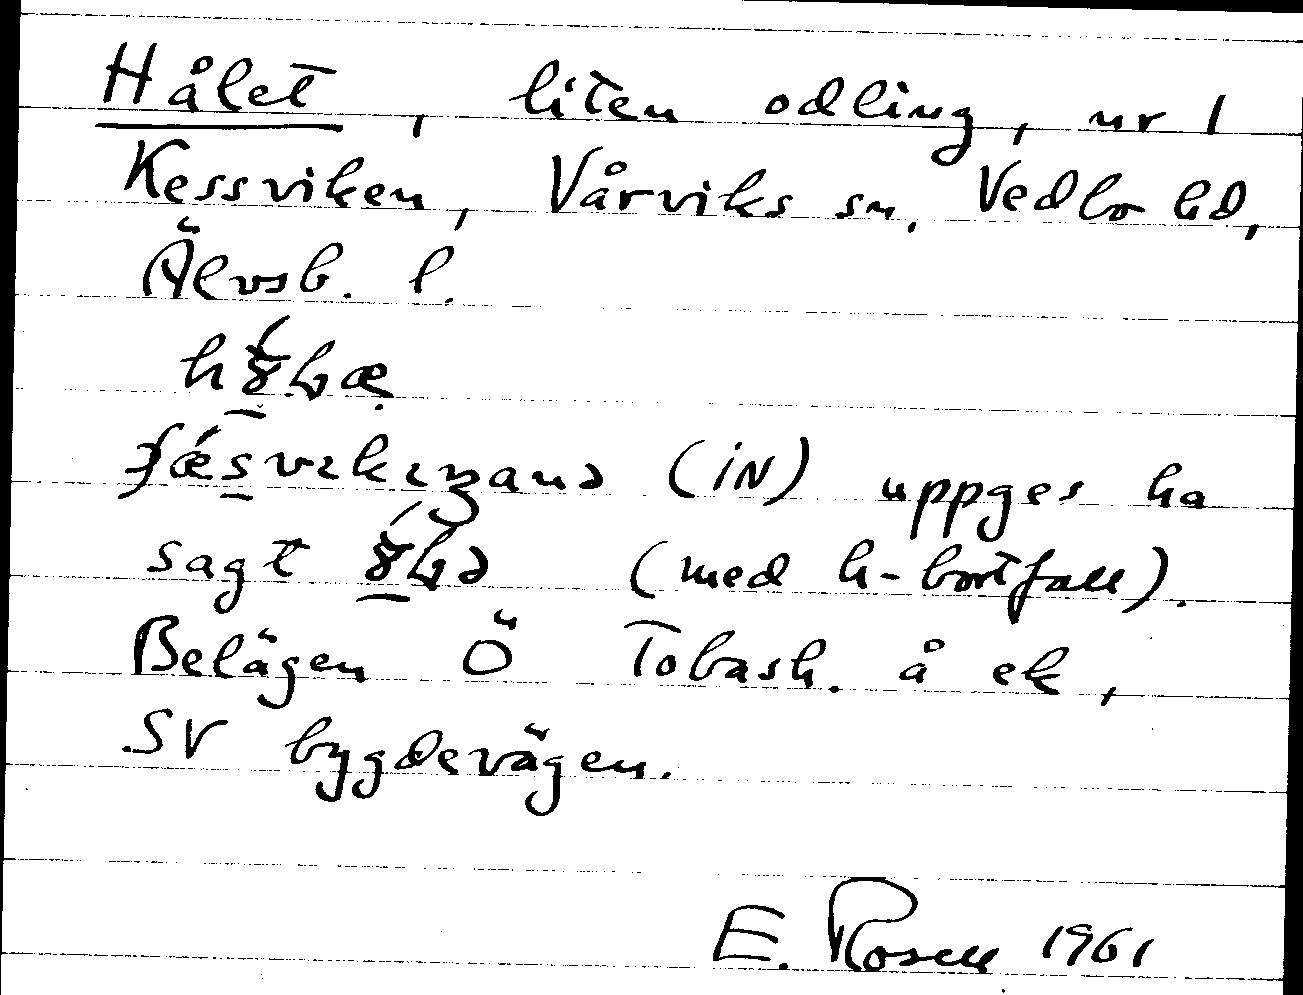 Hålet, liten odling, nr 1
Kessviken, Vårviks sn. Vedbo hd,
Älvsb. l.
(IN) uppges ha
sagt (med h-bortfall).
Belägen Ö Tobash. å ek,
SV bygdevägen.
E. Rosell 1961